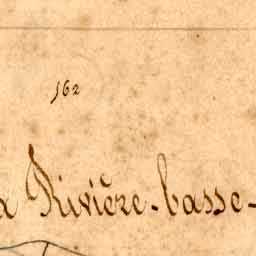 162
Rivière-basse-